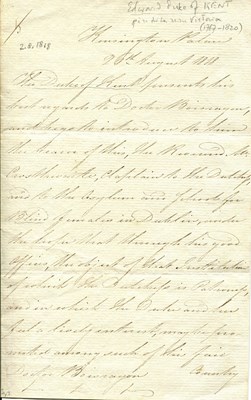 Edward Duke of KENT
(1767-1820)
2.8.1818
Kensington Palace
August 1818
The Duke of Kent presents his
best regards to Doctor
and begs to introduce to him
the bearer of this, the Reverend Mr.
Chaplain to the Dutchess
and to the Asylum and School for
Blind females in Dublin, under
the hope that through his good
offices, the object of that Institution
of which the Dutchess is Patroness,
and in which the Duke and her
feel a lively interest, may be pro-
moted among such of the fair
Doctor